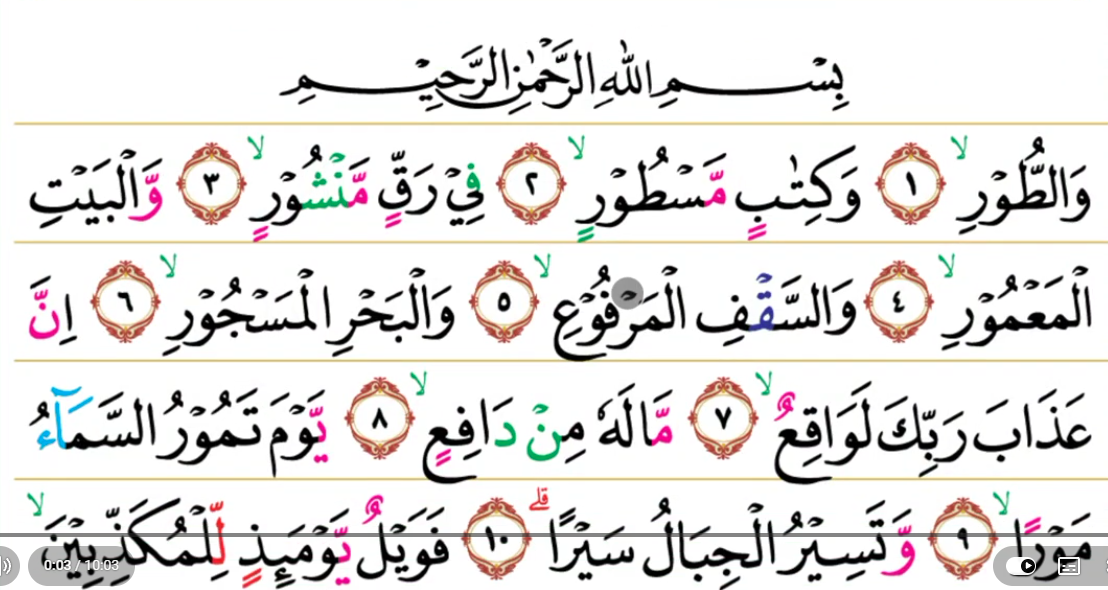 بِسْمِ اللّٰهِ الرَّحْمٰنِ الرَّحِيْمِ
وَالطُّوْرِ ۙ﴿١﴾ وَكِتٰبٍ مَّسْطُوْرٍ ۙ﴿٢﴾ فِيْ رَقٍّ مَّنْشُوْرٍ ۙ﴿٣﴾ وَّالْبَيْتِ
الْمَعْمُوْرِ ۙ﴿٤﴾ وَالسَّقْفِ الْمَرْفُوْعِ ۙ﴿٥﴾ وَالْبَحْرِ الْمَسْجُوْرِ ۙ﴿٦﴾ اِنَّ
عَذَابَ رَبِّكَ لَوَاقِعٌ ۙ﴿٧﴾ مَّا لَهٗ مِنْ دَافِعٍ ۙ﴿٨﴾ يَّوْمَ تَمُوْرُ السَّمَآءُ
مَوْرًا ۙ﴿٩﴾ وَّتَسِيْرُ الْجِبَالُ سَيْرًا ۗ﴿١٠﴾ فَوَيْلٌ يَّوْمَئِذٍ لِّلْمُكَذِّبِيْنَ ۙ
0:03 / 10:03